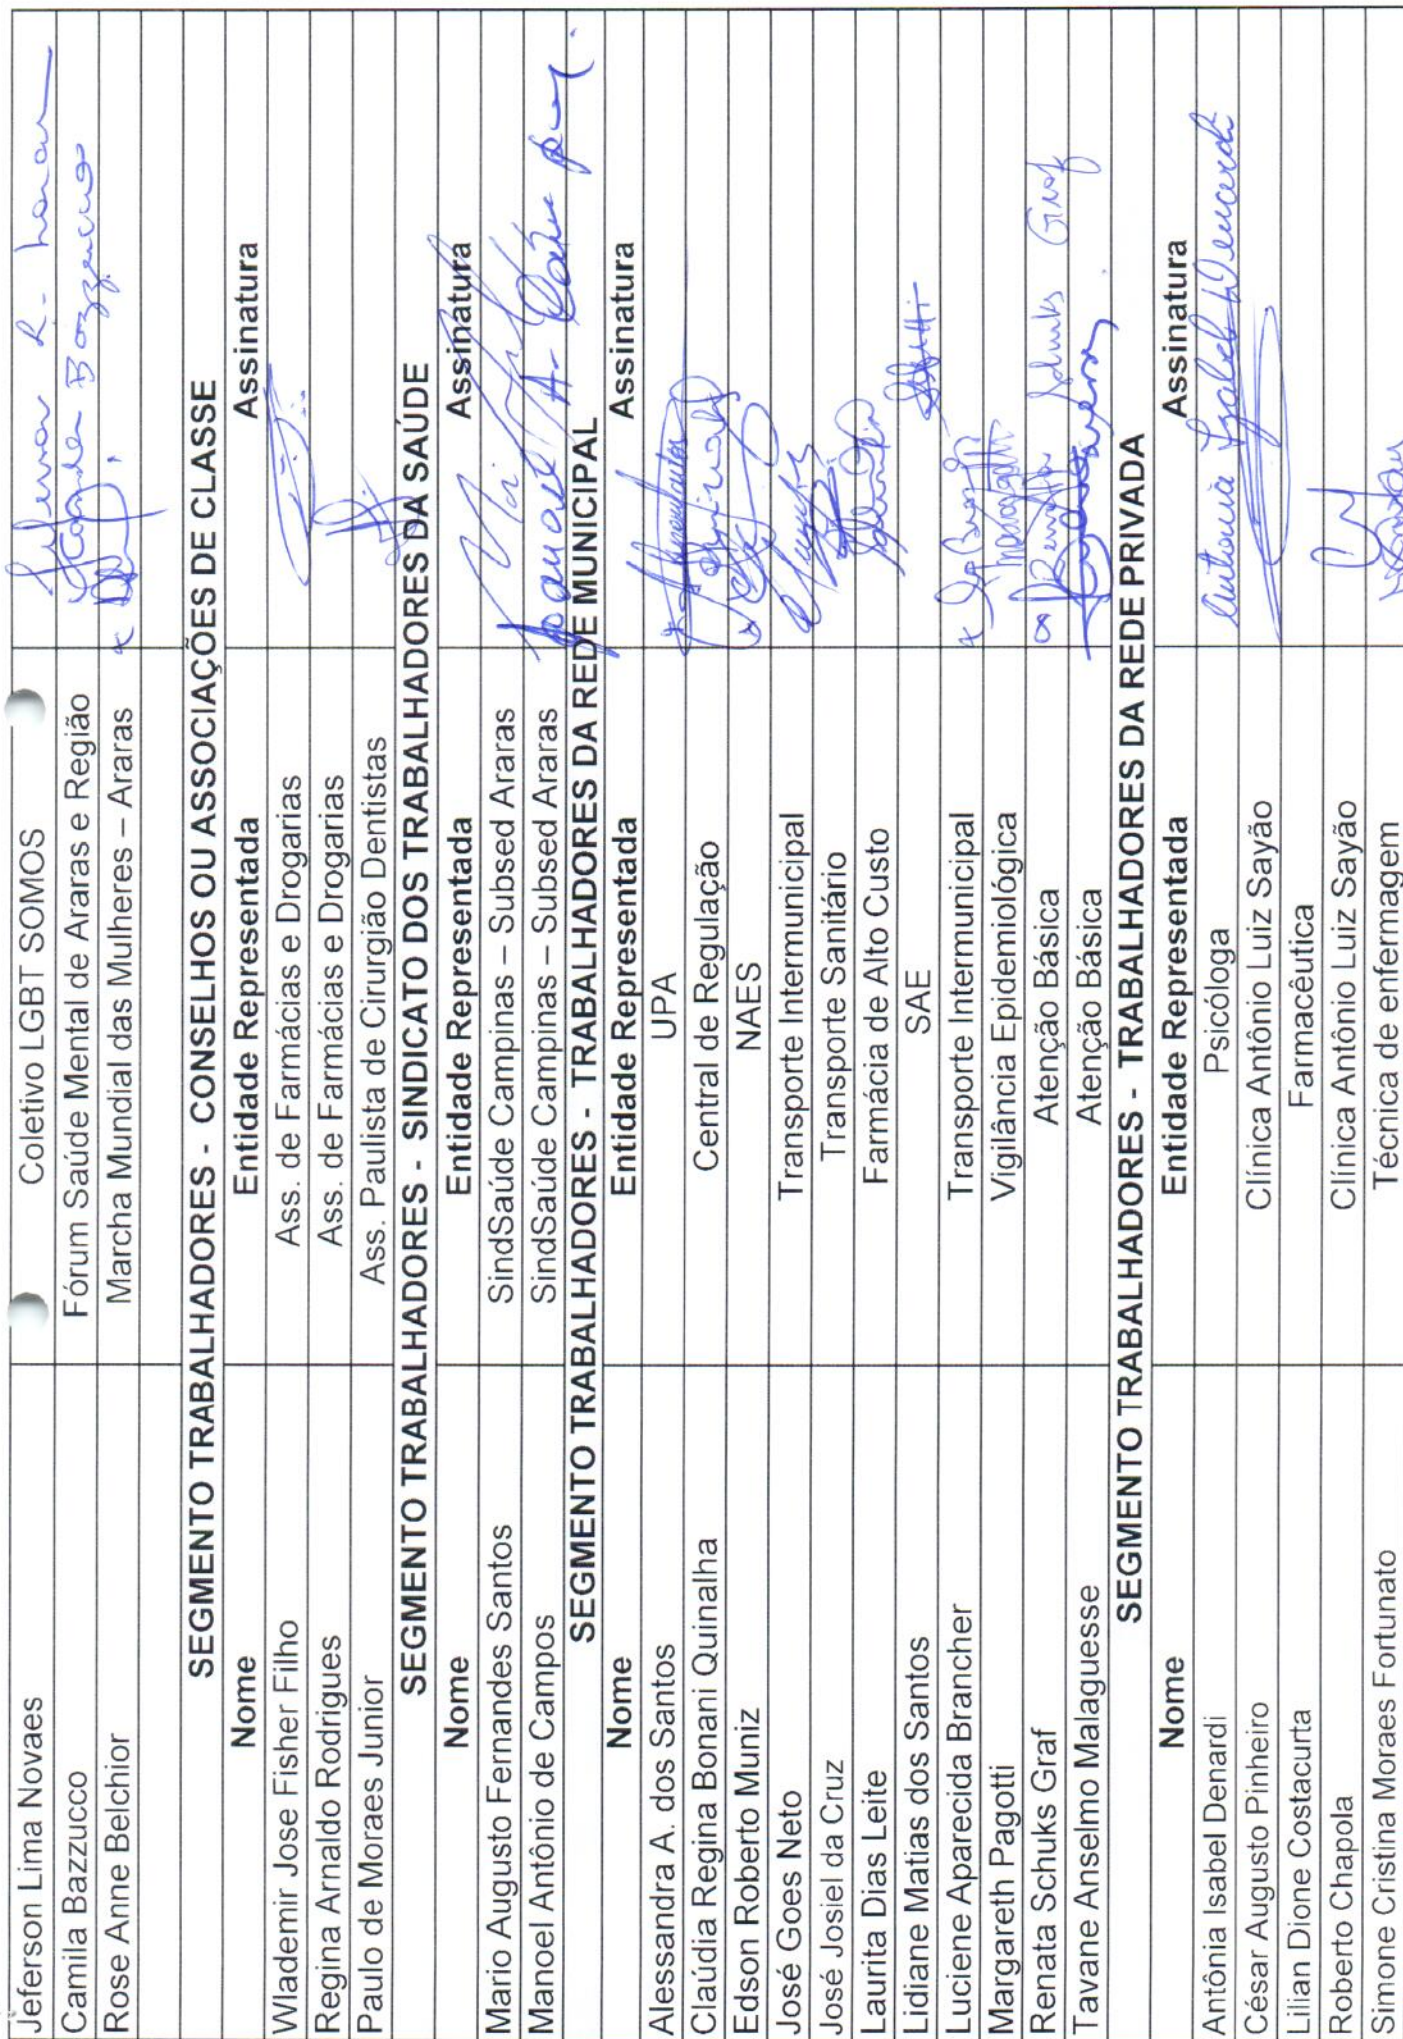 Jéferson Lima Novaes Coletivo LGBT SOMOS
Camila Bazzucco Fórum Saúde Mental de Araras e Região
Rose Anne Belchior Marcha Mundial das Mulheres – Araras
SEGMENTO TRABALHADORES - CONSELHOS OU ASSOCIAÇÕES DE CLASSE
Nome Entidade Representada Assinatura
Wlademir Jose Fisher Filho Ass. de Farmácias e Drogarias
Regina Arnaldo Rodrigues Ass. de Farmácias e Drogarias
Paulo de Moraes Junior Ass. Paulista de Cirurgião Dentistas
SEGMENTO TRABALHADORES - SINDICATO DOS TRABALHADORES DA SAÚDE
Nome Entidade Representada Assinatura
Mario Augusto Fernandes Santos SindSaúde Campinas – Subsed Araras
Manoel Antônio de Campos SindSaúde Campinas – Subsed Araras
SEGMENTO TRABALHADORES - TRABALHADORES DA REDE MUNICIPAL
Nome Entidade Representada Assinatura
Alessandra A. dos Santos UPA
Claúdia Regina Bonani Quinalha Central de Regulação
Edson Roberto Muniz NAES
José Goes Neto Transporte Intermunicipal
José Josiel da Cruz Transporte Sanitário
Laurita Dias Leite Farmácia de Alto Custo
Lidiane Matias dos Santos SAE
Luciene Aparecida Brancher Transporte Intermunicipal
Margareth Pagotti Vigilância Epidemiológica
Renata Schuks Graf Atenção Básica
Tavane Anselmo Malaguesse Atenção Básica
SEGMENTO TRABALHADORES - TRABALHADORES DA REDE PRIVADA
Nome Entidade Representada Assinatura
Antônia Isabel Denardi Psicóloga Antonia Izabel Denardi
César Augusto Pinheiro Clínica Antônio Luiz Sayão
Lilian Dione Costacurta Farmacêutica
Roberto Chapola Clínica Antônio Luiz Sayão
Simone Cristina Moraes Fortunato Técnica de enfermagem